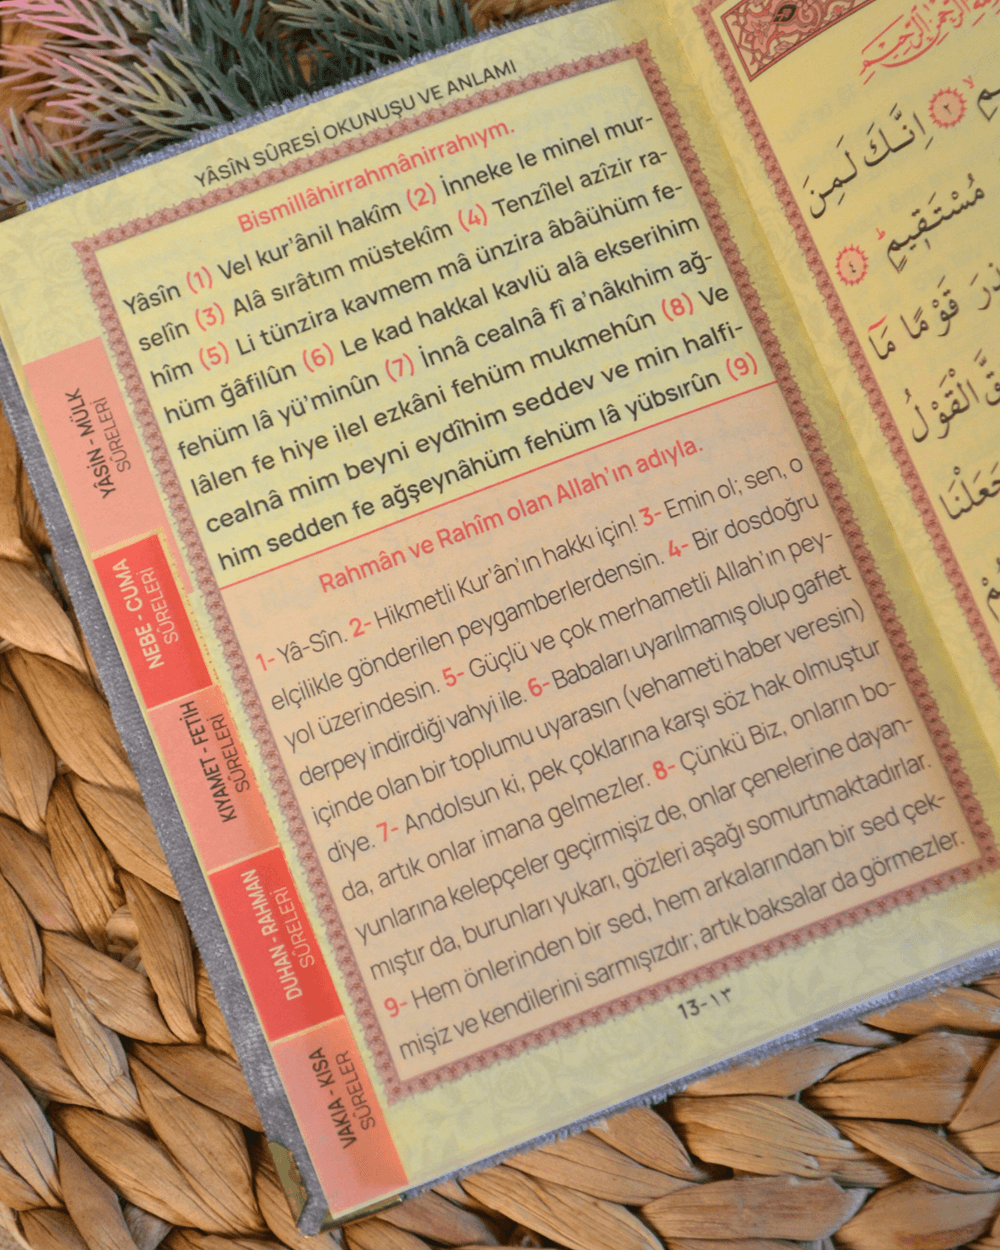 YÂSÎN SÛRESİ OKUNUŞU VE ANLAMI
Bismillâhirrahmânirrahıym.
Yâsîn (1) Vel kur’ânil hakîm (2) İnneke le minel mur-
selîn (3) Alâ sırâtım müstekîm (4) Tenzîlel azîzir ra-
hîm (5) Li tünzira kavmem mâ ünzira âbâühüm fe-
hüm ğâfilûn (6) Le kad hakkal kavlü alâ ekserihim
fehüm lâ yü’minûn (7) İnnâ cealnâ fî a’nâkıhim ağ-
lâlen fe hiye ilel ezkâni fehüm mukmehûn (8) Ve
cealnâ mim beyni eydîhim seddev ve min halfi-
him sedden fe ağşeynâhüm fehüm lâ yübsırûn (9)
Rahmân ve Rahîm olan Allah’ın adıyla.
1- Yâ-Sîn. 2- Hikmetli Kur’ân’ın hakkı için! 3- Emin ol; sen, o
elçilikle gönderilen peygamberlerdensin. 4- Bir dosdoğru
yol üzerindesin. 5- Güçlü ve çok merhametli Allah’ın pey-
derpey indirdiği vahyi ile. 6- Babaları uyarılmamış olup gaflet
içinde olan bir toplumu uyarasın (vehameti haber veresin)
diye. 7- Andolsun ki, pek çoklarına karşı söz hak olmuştur
da, artık onlar imana gelmezler. 8- Çünkü Biz, onların bo-
yunlarına kelepçeler geçirmişiz de, onlar çenelerine dayan-
mıştır da, burunları yukarı, gözleri aşağı somurtmaktadırlar.
9- Hem önlerinden bir sed, hem arkalarından bir sed çek-
mişiz ve kendilerini sarmışızdır; artık baksalar da görmezler.
13-١٣
YÂSİN - MÜLK
SÛRELERİ
NEBE - CUMA
SÛRELERİ
KIYAMET - FETİH
SÛRELERİ
DUHAN - RAHMAN
SÛRELERİ
VAKIA - KISA
SÛRELER
٢ اِنَّكَ لَمِنَ
مُسْتَقِيمٍ ٤
قَوْمًا مَٓا
الْقَوْلُ